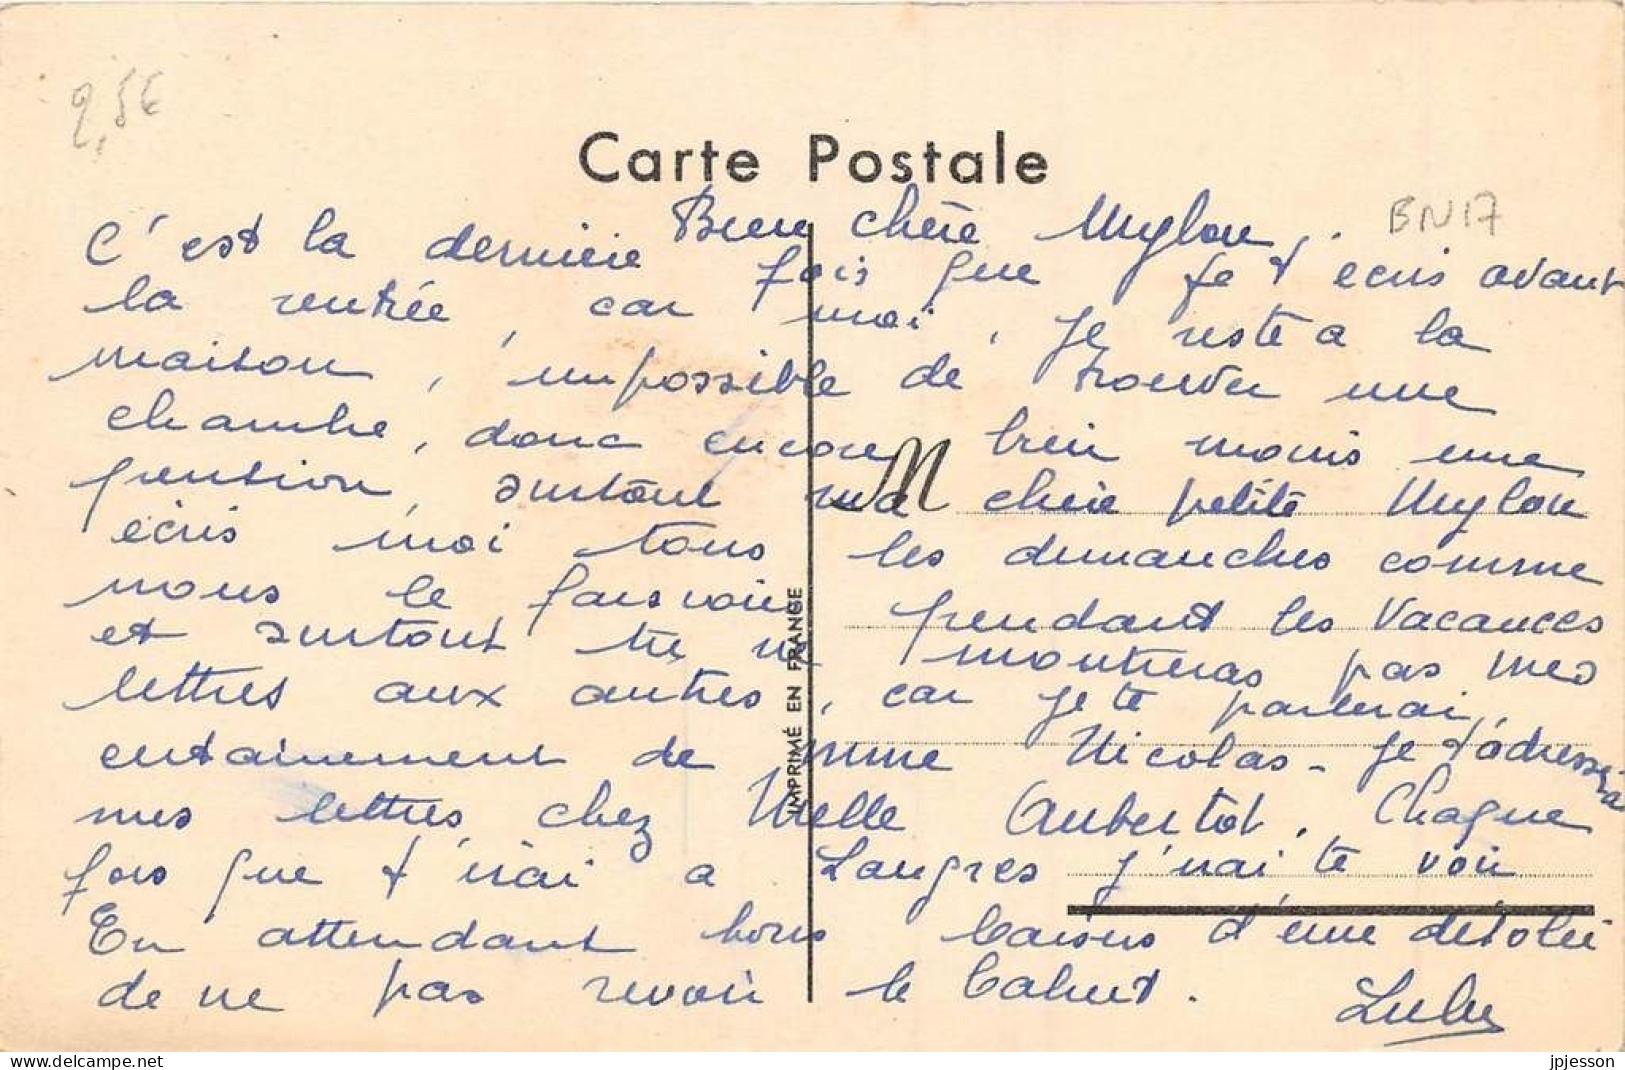 2,5€
Carte Postale
BN17
Bien chère Mylou,
C'est la dernière fois que je t'ecris avant
la rentrée, car moi, je reste a la
maison, impossible de trouver une
chambre, donc encore bien moins une
pension, surtout ma chère petite Mylou
écris moi tous les dimanches comme
nous le faisions pendant les vacances
et surtout tu ne montreras pas mes
lettres aux autres, car je te parlerai,
certainement de mme Nicolas - je t'adresserai
mes lettres chez Melle Aubertot. Chaque
fois que j'irai a Langres j'irai te voir
En attendant bons baisers d'une désolée
de ne pas revoir le bahut.
Lulu
IMPRIMÉ EN FRANCE
jpjesson